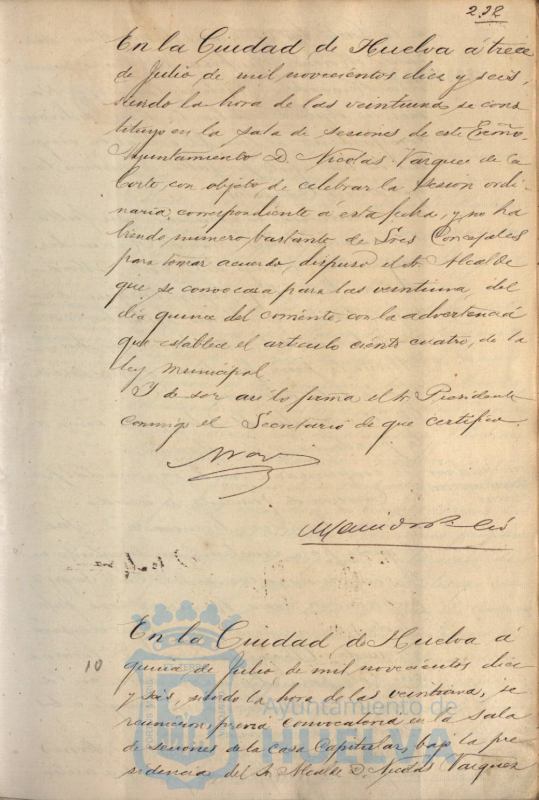 2.92
En la Ciudad de Huelva a trece
de Julio de mil novecientos diez y seis,
siendo la hora de las veintiuna, se cons
tituyo en la sala de sesiones de este Excmo.
Ayuntamiento D. Nicolas Vazquez de la
Corte, con objeto de celebrar la sesion ordi-
naria correspondiente á esta fecha, y no ha
biendo número bastante de Sres Concejales
para tomar acuerdo, dispuso el Sr. Alcalde
que se convocara para las veintiuna del
dia quince del corriente, con la advertencia
que establece el articulo ciento cuatro, de la
ley municipal.
Y de ser asi lo firma el Sr. Presidente
conmigo el Secretario de que certifico.
En la Ciudad de Huelva á
10
quince de Julio de mil novecientos diez
y seis, siendo la hora de las veintiuna, se
reunieron, previa convocatoria en la sala
de sesiones de la casa Capitular, bajo la pre
sidencia del Sr. Alcalde D. Nicolas Vazquez
Ayuntamiento de
HUELVA